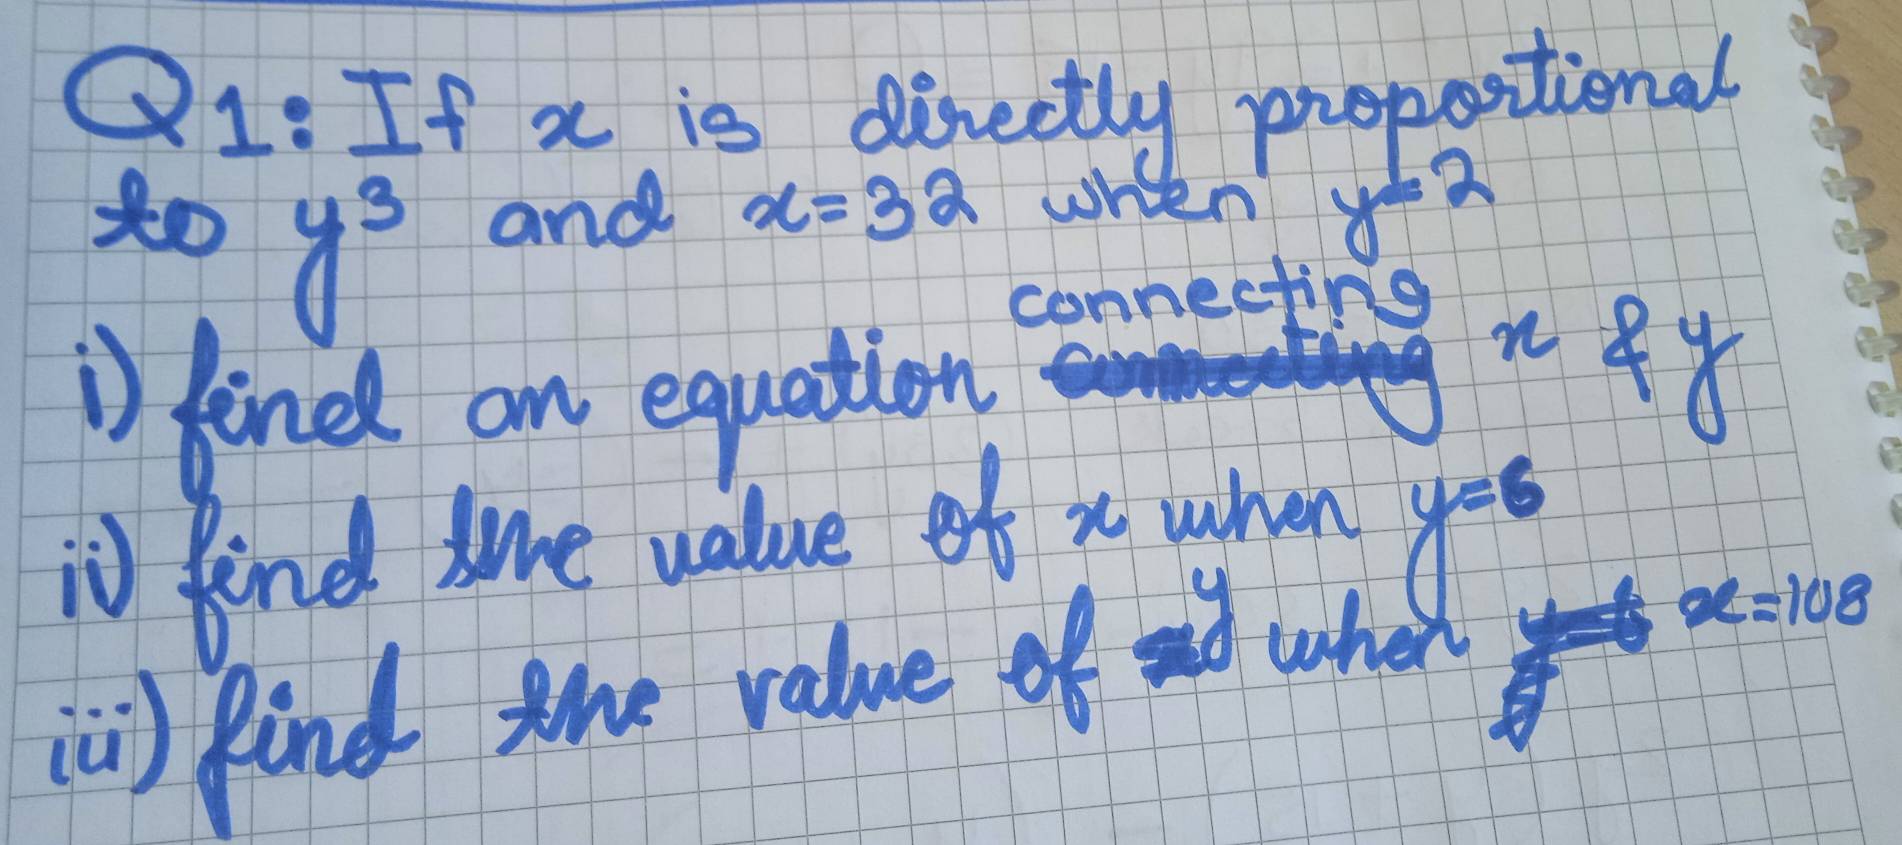 Q1: If x is directly proportional
to y³ and x=32 when y=2
i) find an equation connecting x & y
ii) find the value of x when y=6
iii) find the value of y when x=108